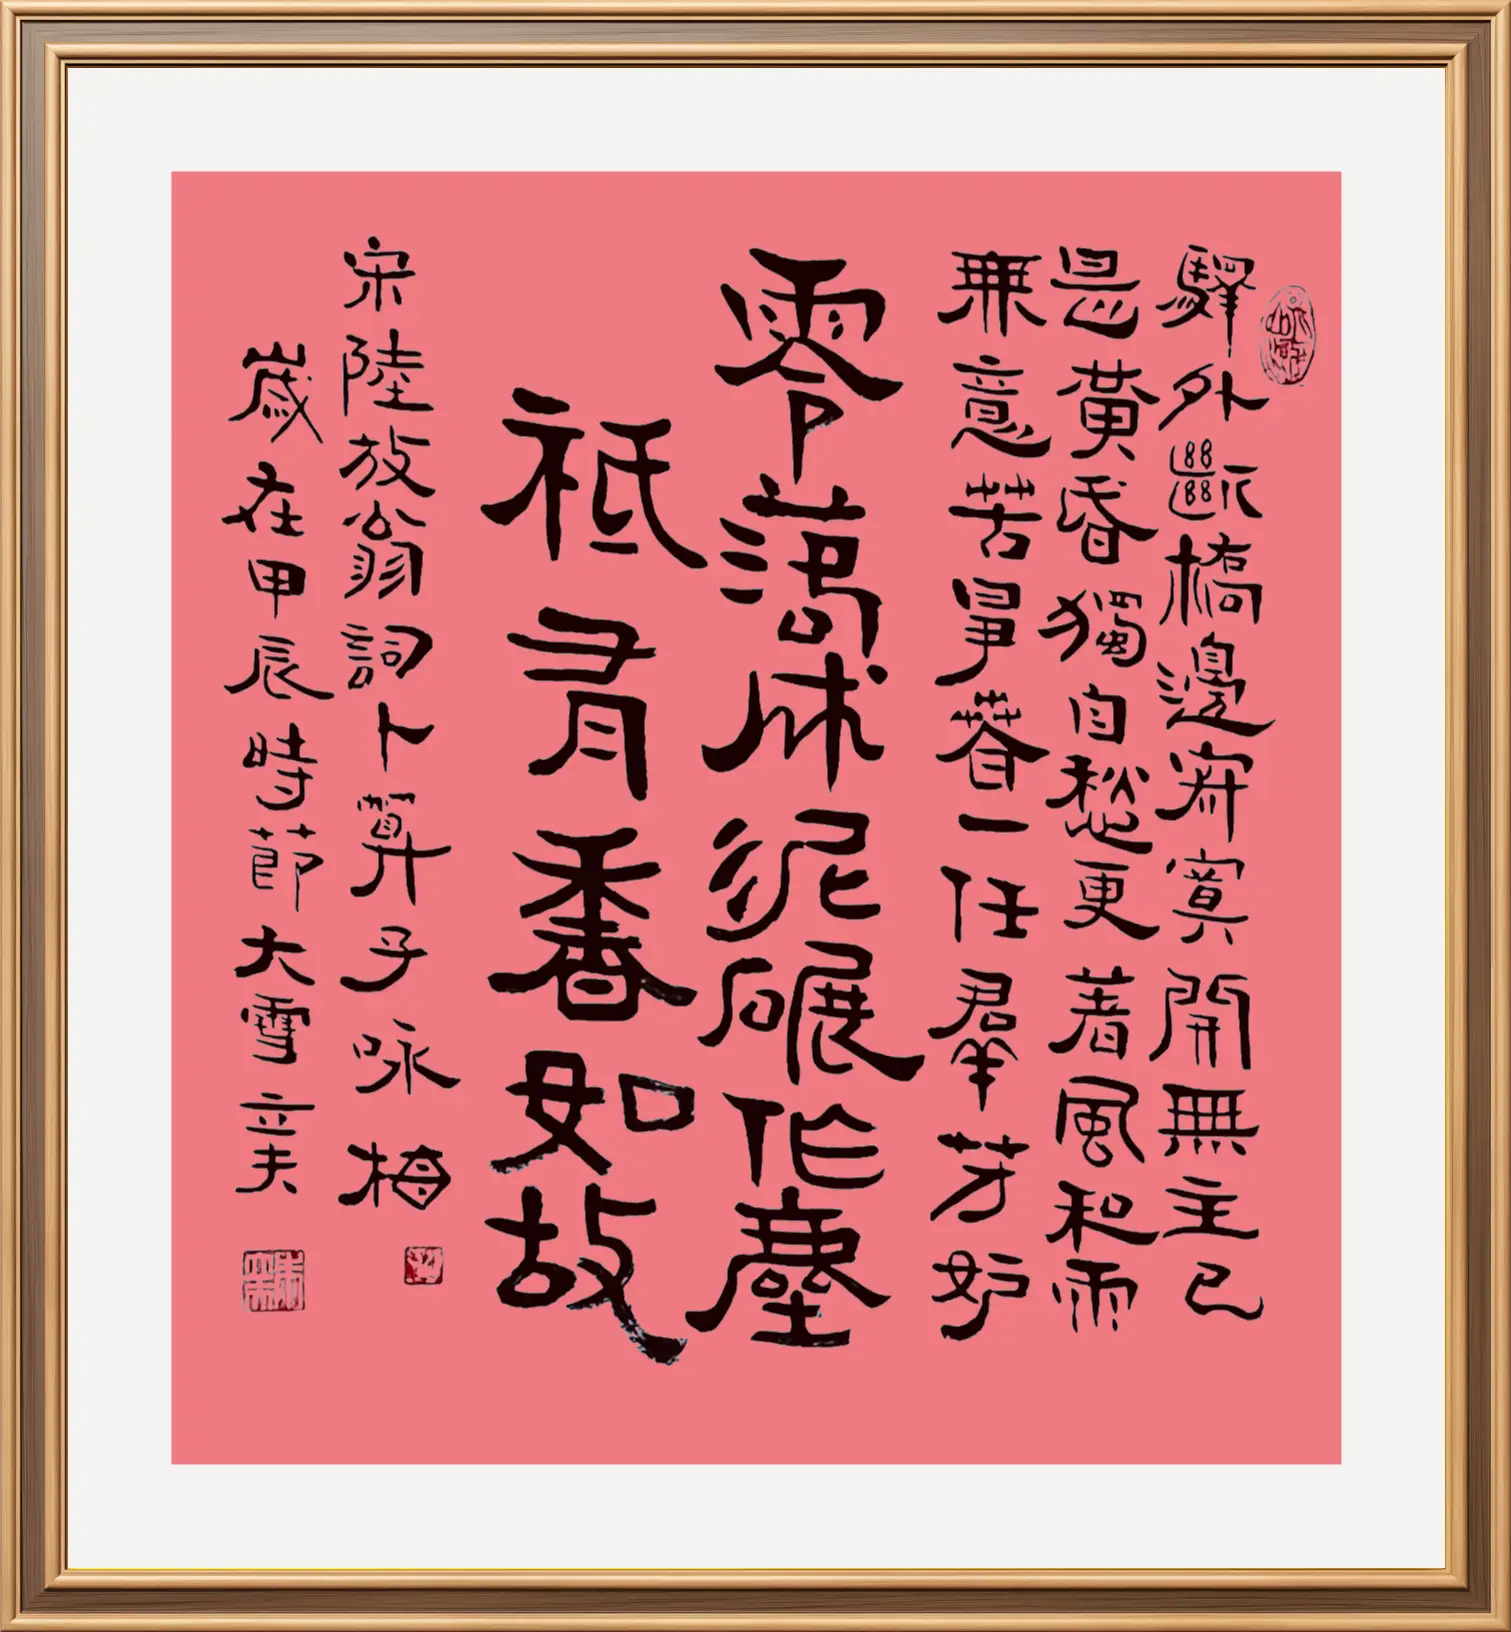 驛外斷橋邊寂寞開無主已
是黃昏獨自愁更著風和雨
無意苦爭春一任羣芳妒
零落成泥碾作塵
祇有香如故
宋陸放翁詞卜算子咏梅
歲在甲辰時節大雪立夫